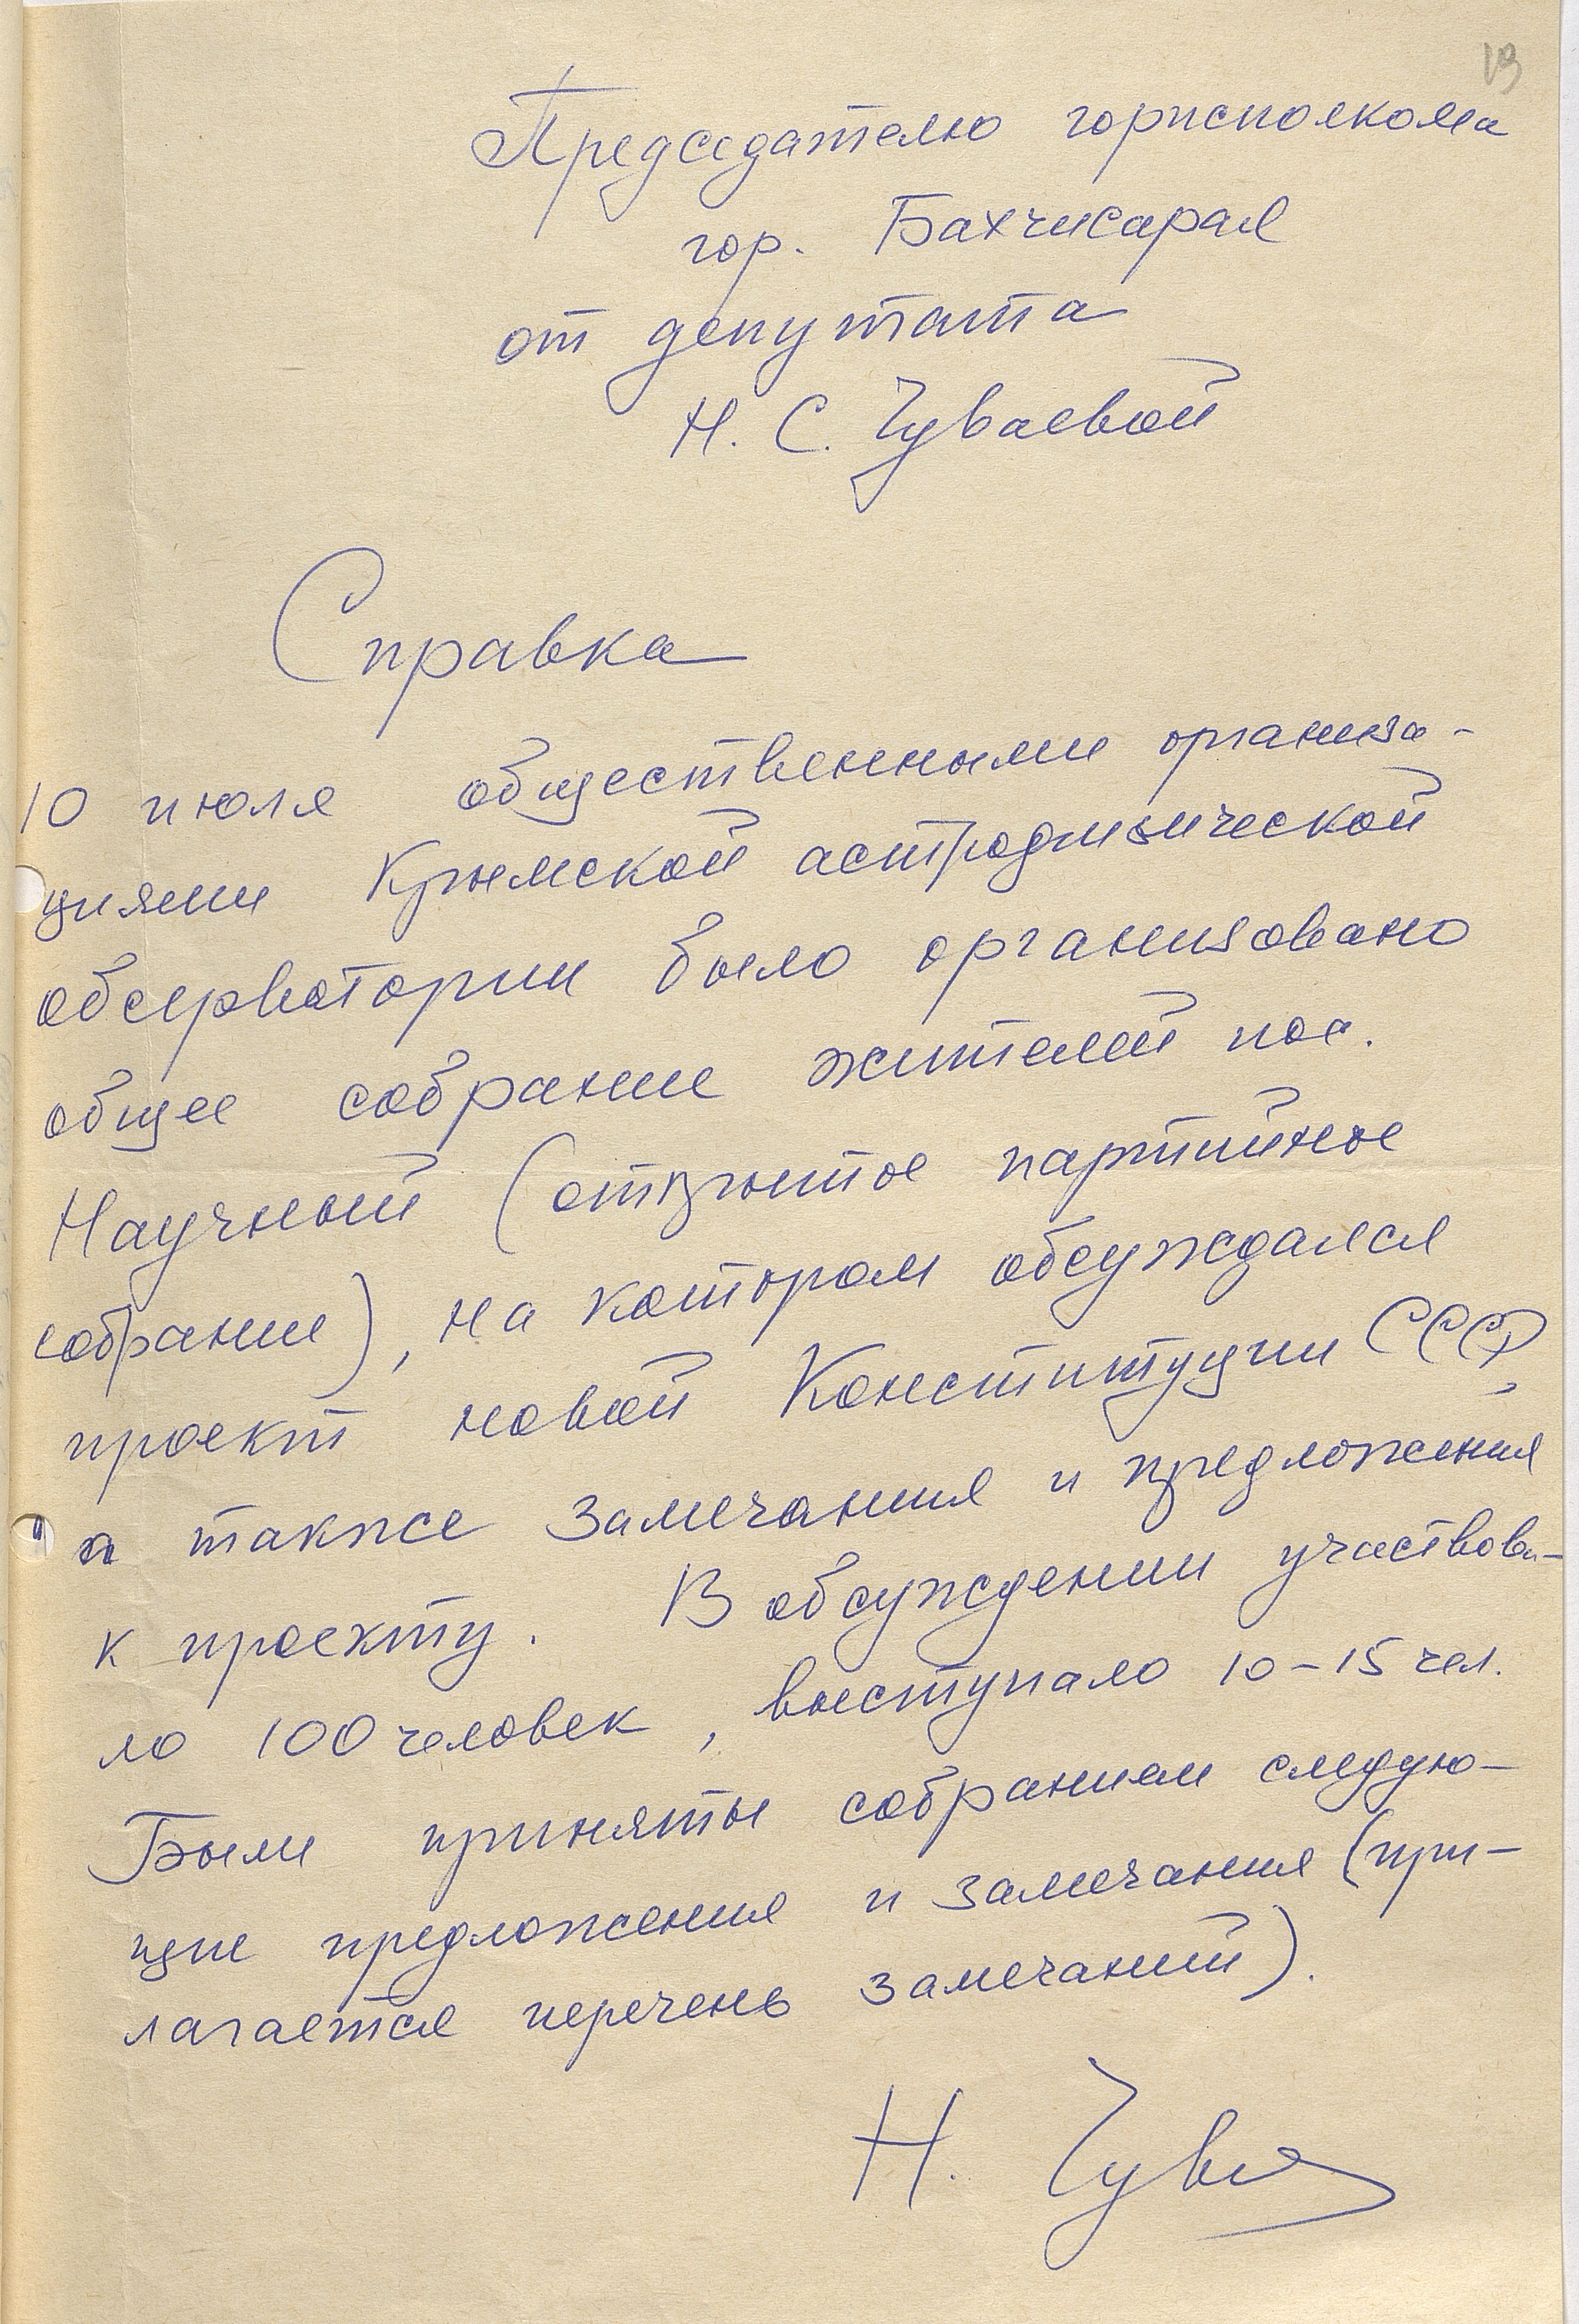 19
Председателю горисполкома
гор. Бахчисарая
от депутата
Н. С. Чуваевой
Справка
10 июля общественными организа-
циями Крымской астрофизической
обсерватории было организовано
общее собрание жителей пос.
Научный (открытое партийное
собрание), на котором обсуждался
проект новой Конституции СССР,
а также замечания и предложения
к проекту. В обсуждении участвова-
ло 100 человек, выступало 10-15 чел.
Были приняты собранием следую-
щие предложения и замечания (при-
лагается перечень замечаний).
Н. Чув